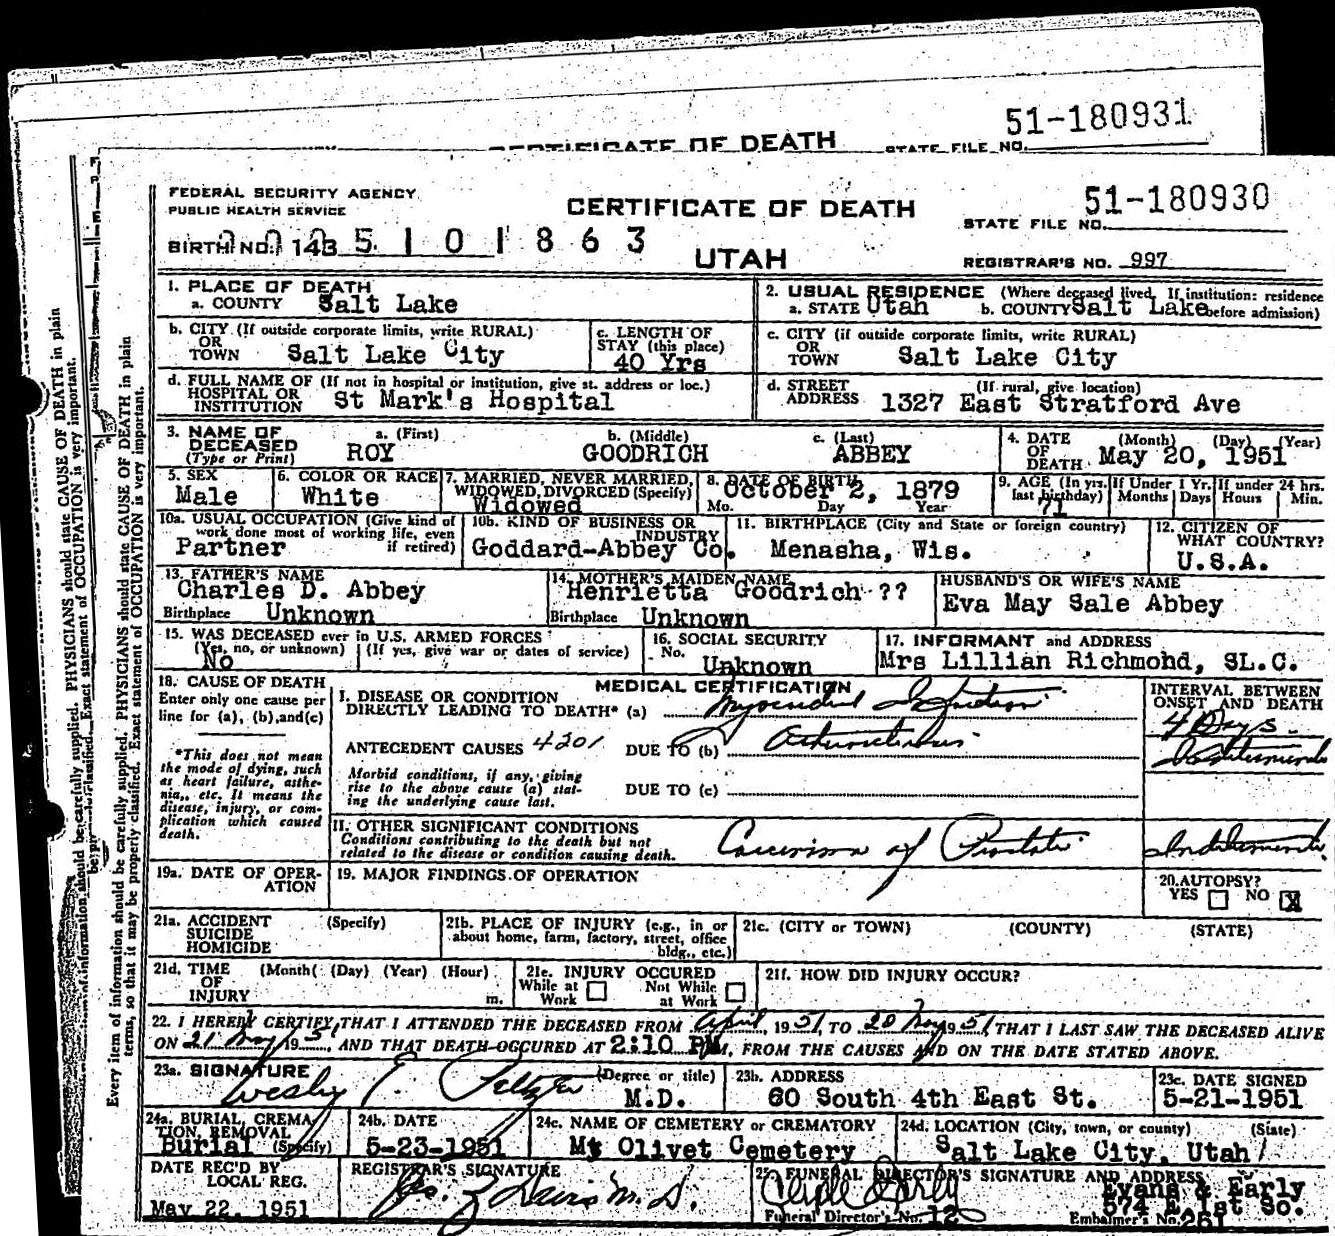 51-180931
CERTIFICATE OF DEATH STATE FILE NO.
FEDERAL SECURITY AGENCY
PUBLIC HEALTH SERVICE
CERTIFICATE OF DEATH
51-180930
STATE FILE NO.
BIRTH NO. 143 5 1 0 1 8 6 3
UTAH
REGISTRAR'S NO. 997
1. PLACE OF DEATH
a. COUNTY Salt Lake
2. USUAL RESIDENCE (Where deceased lived. If institution: residence before admission)
a. STATE Utah b. COUNTY Salt Lake
b. CITY (If outside corporate limits, write RURAL)
OR
TOWN Salt Lake City
c. LENGTH OF
STAY (this place)
40 Yrs
c. CITY (if outside corporate limits, write RURAL)
OR
TOWN Salt Lake City
d. FULL NAME OF (If not in hospital or institution, give st. address or loc.)
HOSPITAL OR
INSTITUTION St Mark's Hospital
d. STREET (If rural, give location)
ADDRESS 1327 East Stratford Ave
3. NAME OF DECEASED (Type or Print)
a. (First) b. (Middle) c. (Last)
ROY GOODRICH ABBEY
4. DATE OF DEATH (Month) (Day) (Year)
May 20, 1951
5. SEX
Male
6. COLOR OR RACE
White
7. MARRIED, NEVER MARRIED,
WIDOWED, DIVORCED (Specify)
Widowed
8. DATE OF BIRTH
October 2, 1879
Mo. Day Year
9. AGE (In yrs. last birthday) If Under 1 Yr. If under 24 hrs.
71 Months Days Hours Min.
10a. USUAL OCCUPATION (Give kind of
work done most of working life, even
if retired)
Partner
10b. KIND OF BUSINESS OR
INDUSTRY
Goddard-Abbey Co.
11. BIRTHPLACE (City and State or foreign country)
Menasha, Wis.
12. CITIZEN OF
WHAT COUNTRY?
U.S.A.
13. FATHER'S NAME
Charles D. Abbey
Birthplace Unknown
14. MOTHER'S MAIDEN NAME
Henrietta Goodrich ??
Birthplace Unknown
HUSBAND'S OR WIFE'S NAME
Eva May Sale Abbey
15. WAS DECEASED ever in U.S. ARMED FORCES
(Yes, no, or unknown) (If yes, give war or dates of service)
No
16. SOCIAL SECURITY
No.
Unknown
17. INFORMANT and ADDRESS
Mrs Lillian Richmond, SL.C.
18. CAUSE OF DEATH
Enter only one cause per
line for (a), (b), and (c)
*This does not mean
the mode of dying, such
as heart failure, asthe-
nia, etc. It means the
disease, injury, or com-
plication which caused
death.
MEDICAL CERTIFICATION
I. DISEASE OR CONDITION
DIRECTLY LEADING TO DEATH* (a) Myocardial Infarction
ANTECEDENT CAUSES 4201 DUE TO (b)
Morbid conditions, if any, giving
rise to the above cause (a) stat-
ing the underlying cause last.
DUE TO (c)
II. OTHER SIGNIFICANT CONDITIONS
Conditions contributing to the death but not
related to the disease or condition causing death.
Carcinoma of Prostate
INTERVAL BETWEEN
ONSET AND DEATH
4 Days.
19a. DATE OF OPER-
ATION
19. MAJOR FINDINGS OF OPERATION
20. AUTOPSY?
YES NO X
21a. ACCIDENT (Specify)
SUICIDE
HOMICIDE
21b. PLACE OF INJURY (e.g., in or
about home, farm, factory, street, office
bldg., etc.)
21c. (CITY or TOWN) (COUNTY) (STATE)
21d. TIME (Month) (Day) (Year) (Hour)
OF
INJURY m.
21e. INJURY OCCURED
While at Work Not While at Work
21f. HOW DID INJURY OCCUR?
22. I HEREBY CERTIFY THAT I ATTENDED THE DECEASED FROM April, 1951, TO 20 May 1951 THAT I LAST SAW THE DECEASED ALIVE
ON 21 May 195, AND THAT DEATH OCCURED AT 2:10 PM, FROM THE CAUSES AND ON THE DATE STATED ABOVE.
23a. SIGNATURE (Degree or title)
Wesley E. Peltzer M.D.
23b. ADDRESS
60 South 4th East St.
23c. DATE SIGNED
5-21-1951
24a. BURIAL, CREMA-
TION, REMOVAL
Burial (Specify)
24b. DATE
5-23-1951
24c. NAME OF CEMETERY or CREMATORY
Mt Olivet Cemetery
24d. LOCATION (City, town, or county) (State)
Salt Lake City, Utah
DATE REC'D BY
LOCAL REG.
May 22, 1951
REGISTRAR'S SIGNATURE
25. FUNERAL DIRECTOR'S SIGNATURE AND ADDRESS
Clyde Early
Evans & Early
574 E. 1st So.
Funeral Director's No. 12 Embalmer's No. 261
Every item of information should be carefully supplied. PHYSICIANS should state CAUSE OF DEATH in plain
terms, so that it may be properly classified. Exact statement of OCCUPATION is very important.